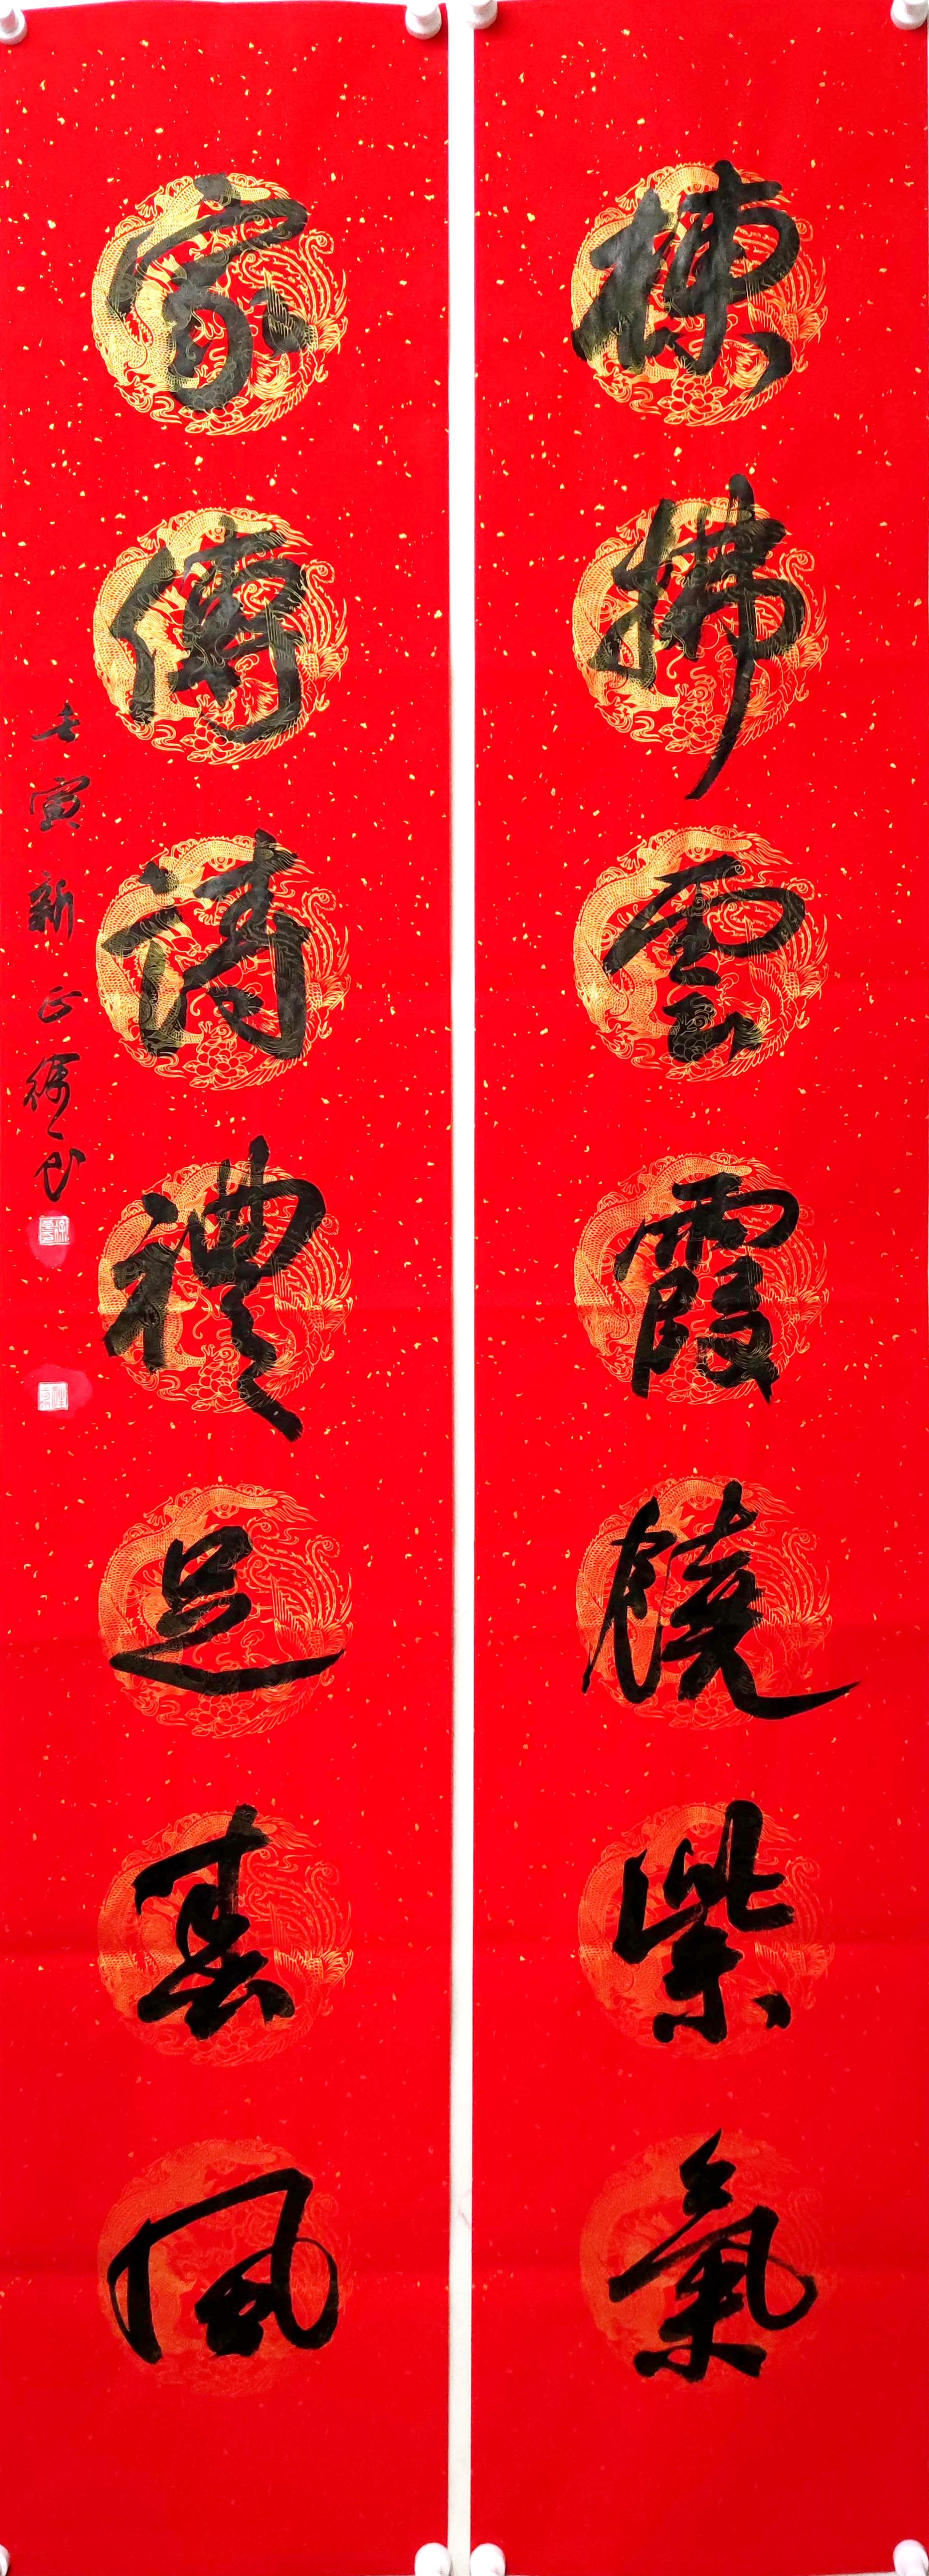 棟拂雲霞饒紫氣
家傳詩禮足春風
壬寅新正